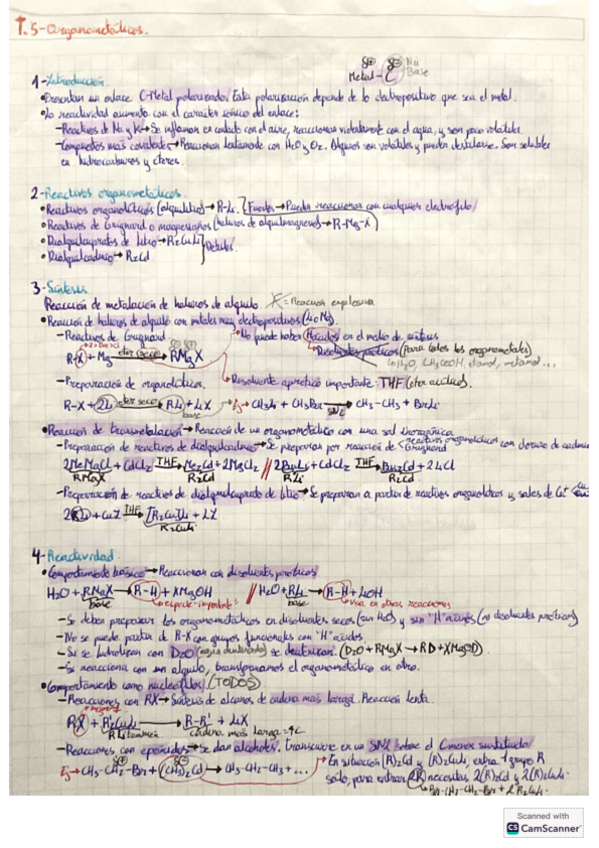 T.5-Organometálicos.
δ⊕ δ⊖ Nu
Metal-C Base
1-Introducción
•Presentan un enlace C-Metal polarizado. Esta polarización depende de lo electropositivo que sea el metal.
•La reactividad aumenta con el carácter iónico del enlace:
-Reactivos de Na y K→Se inflaman en contacto con el aire, reaccionan violentamente con el agua, y son poco volátiles.
-Compuestos más covalentes→Reaccionan lentamente con H2O y O2. Algunos son volátiles y pueden destilarse. Son solubles
en hidrocarburos y éteres.
2-Reactivos organometálicos.
•Reactivos organolíticos (alquillitio)→R-Li. Fuertes→Pueden reaccionar con cualquier electrófilo
•Reactivos de Grignard o magnesianos (haluros de alquilmagnesio)→R-Mg-X
•Dialquilcupratos de litio→R2CuLi
•Dialquilcadmio→R2Cd Débiles.
3-Síntesis
Reacción de metalación de haluros de alquilo. K=Reacción explosiva
•Reacción de haluros de alquilo con metales muy electropositivos (Li o Mg).
-Reactivos de Grignard. No puede haber ácidos en el medio de síntesis
R-X + Mg éter seco→ RMgX Disolventes próticos (Para todos los organometales)
H2O, CH3COOH, etanol, metanol...
-Preparación de organolíticos. Disolvente aprótico importante: THF (éter acíclico).
R-X + 2Li éter seco→ RLi + LiX Ej→ CH3Li + CH3Br SN2→ CH3-CH3 + BrLi
base
•Reacción de transmetalación→Reacción de un organometálico con una sal inorgánica
-Preparación de reactivos de dialquilcadmio→Se preparan por reacción de reactivos organolíticos con cloruro de cadmio
Grignard
2MeMgCl + CdCl2 THF→ Me2Cd + 2MgCl2 // 2BuLi + CdCl2 THF→ Bu2Cd + 2LiCl
RMgX R2Cd RLi R2Cd
-Preparación de reactivos de dialquilcuprato de litio→Se preparan a partir de reactivos organolíticos y sales de Cu+
2RLi + CuX THF→ [R2Cu]Li + LiX
R2CuLi
4-Reactividad
•Comportamiento básico→Reaccionan con disolventes próticos
H2O + RMgX → R-H + XMgOH // H2O + RLi → R-H + LiOH
base especie importante base usa en otras reacciones
-Se deben preparar los organometálicos en disolventes secos (sin H2O) y sin "H" ácidos (no disolventes próticos)
-No se puede partir de R-X con grupos funcionales con "H" ácidos.
-Si se hidrolizan con D2O (agua deuterada) se deuterizan. (D2O + RMgX → RD + XMgOD).
-Si reacciona con un alquilo, transformamos el organometálico en otro.
•Comportamiento como nucleófilos. (TODOS)
-Reacciones con RX→Síntesis de alcanos de cadena más larga. Reacción lenta.
RX + R'2CuLi → R-R' + LiX
RLi también cadena más larga = ↑C
-Reacciones con epóxidos→Se dan alcoholes. Transcurre en un SN2 sobre el C menos sustituido
Ej→CH3-CH2-Br + (CH3)2Cd → CH3-CH2-CH3 + ... En situación (R)2Cd y (R)2CuLi, entra 1 grupo R
solo, para entrar 2R necesitas 2(R)2Cd y 2(R)2CuLi.
Br-CH2-CH2-Br + 2R2CuLi.
Scanned with
CS CamScanner